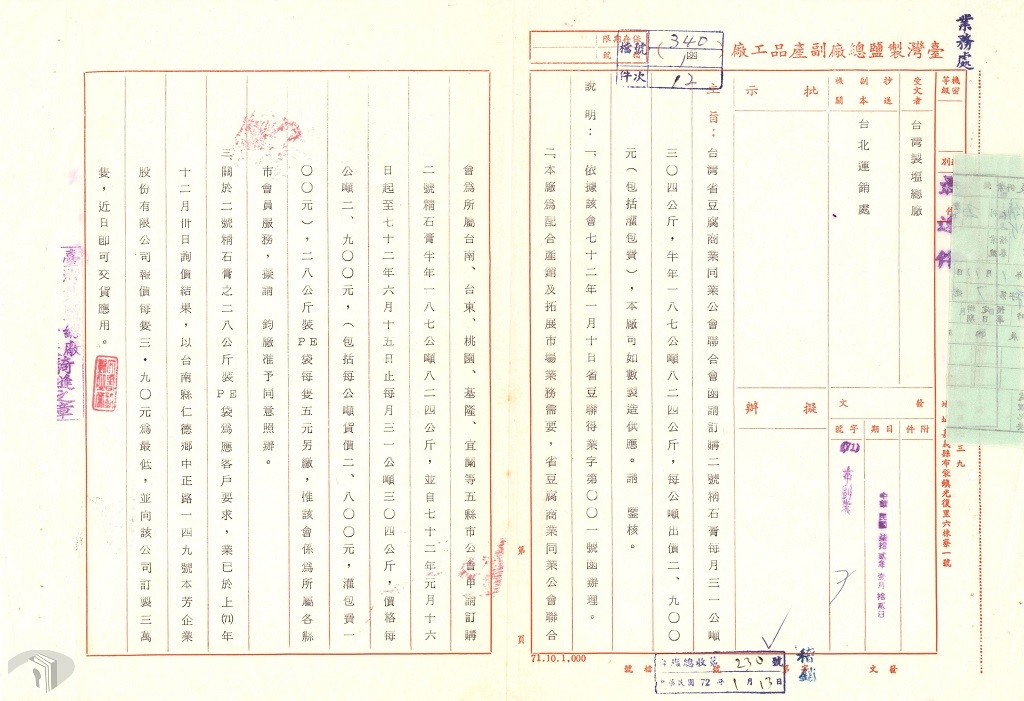 業務處
臺灣製鹽總廠副產品工廠
機密等級
受文者
台灣製塩總廠
抄送副本機關
台北運銷處
批示
擬辦
發文
附件
日期
字號
中華民國柒拾貳年壹月拾貳日
(72)
布副業
7
檔號
340
函
1
件次
12
主旨：台灣省豆腐商業同業公會聯合會函請訂購二號精石膏每月三一公噸
三〇四公斤，半年一八七公噸八二四公斤，每公噸出價二、九〇〇
元（包括灌包費），本廠可如數製造供應。請　鑒核。
說明：一、依據該會七十二年一月十日省豆聯得業字第〇〇一號函辦理。
二、本廠為配合產銷及拓展市場業務需要，省豆腐商業同業公會聯合
會為所屬台南、台東、桃園、基隆、宜蘭等五縣市公會申請訂購
二號精石膏半年一八七公噸八二四公斤，並自七十二年元月十六
日起至七十二年六月十五日止每月三一公噸三〇四公斤，價格每
公噸二、九〇〇元，（包括每公噸貨價二、八〇〇元，灌包費一
〇〇元），二八公斤裝ＰＥ袋每隻五元另繳，惟該會係為所屬各縣
市會員服務，擬請　鈞廠准予同意照辦。
三、關於二號精石膏之二八公斤裝ＰＥ袋為應客戶要求，業已於上(71)年
十二月卅日詢價結果，以台南縣仁德鄉中正路一四九號本芳企業
股份有限公司報價每隻三‧九〇元為最低，並向該公司訂製三萬
隻，近日即可交貨應用。
第　頁
71.10.1,000
總收文
230號
中華民國72年1月13日
發文
檔號
嘉義縣布袋鎮光復里六棟寮一號
三九